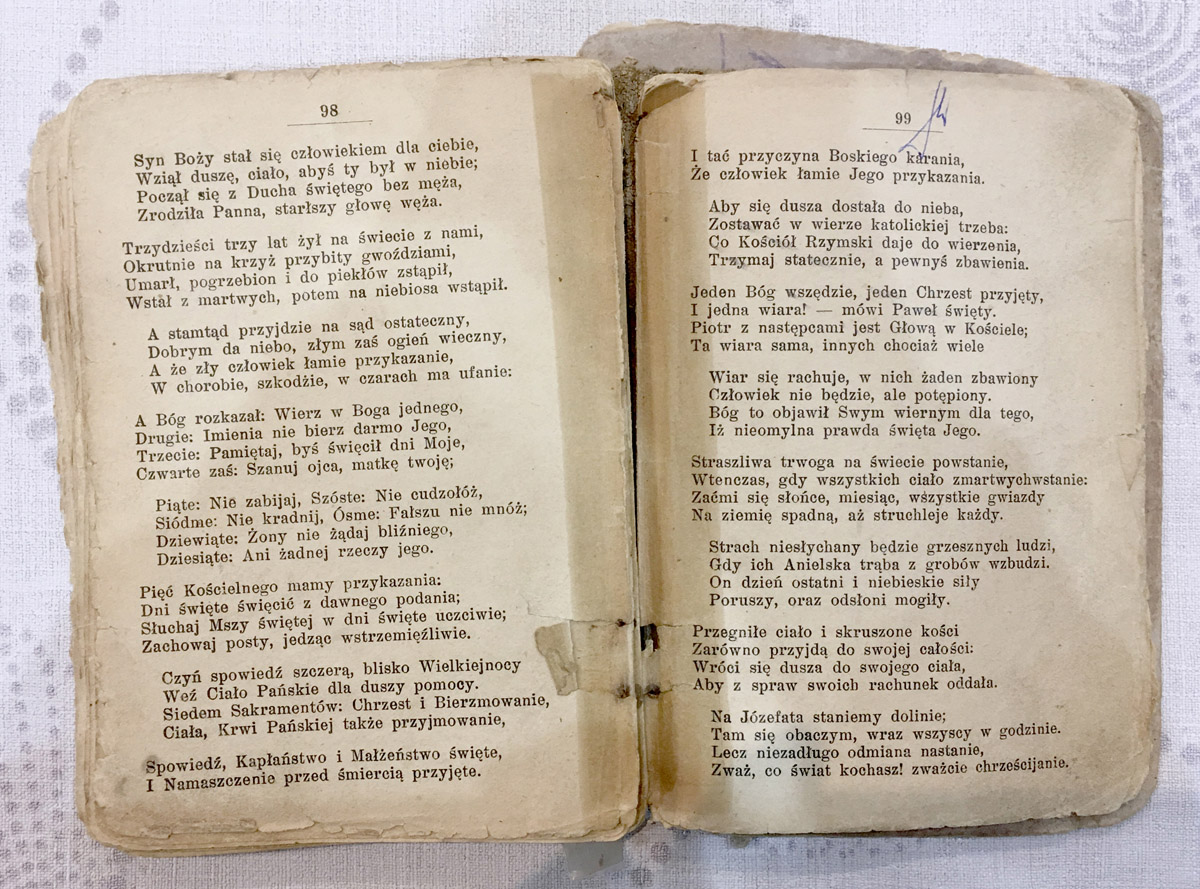 98
Syn Boży stał się człowiekiem dla ciebie,
Wziął duszę, ciało, abyś ty był w niebie;
Począł się z Ducha świętego bez męża,
Zrodziła Panna, starłszy głowę węża.
Trzydzieści trzy lat żył na świecie z nami,
Okrutnie na krzyż przybity gwoździami,
Umarł, pogrzebion i do piekłów zstąpił,
Wstał z martwych, potem na niebiosa wstąpił.
A stamtąd przyjdzie na sąd ostateczny,
Dobrym da niebo, złym zaś ogień wieczny,
A że zły człowiek łamie przykazanie,
W chorobie, szkodzie, w czarach ma ufanie:
A Bóg rozkazał: Wierz w Boga jednego,
Drugie: Imienia nie bierz darmo Jego,
Trzecie: Pamiętaj, byś święcił dni Moje,
Czwarte zaś: Szanuj ojca, matkę twoję;
Piąte: Nie zabijaj, Szóste: Nie cudzołóż,
Siódme: Nie kradnij, Ósme: Fałszu nie mnóż;
Dziewiąte: Żony nie żądaj bliźniego,
Dziesiąte: Ani żadnej rzeczy jego.
Pięć Kościelnego mamy przykazania:
Dni święte święcić z dawnego podania;
Słuchaj Mszy świętej w dni święte uczciwie;
Zachowaj posty, jedząc wstrzemięźliwie.
Czyń spowiedź szczerą, blisko Wielkiejnocy
Weź Ciało Pańskie dla duszy pomocy.
Siedem Sakramentów: Chrzest i Bierzmowanie,
Ciała, Krwi Pańskiej także przyjmowanie,
Spowiedź, Kapłaństwo i Małżeństwo święte,
I Namaszczenie przed śmiercią przyjęte.
99
I tać przyczyna Boskiego karania,
Że człowiek łamie Jego przykazania.
Aby się dusza dostała do nieba,
Zostawać w wierze katolickiej trzeba:
Co Kościół Rzymski daje do wierzenia,
Trzymaj statecznie, a pewnyś zbawienia.
Jeden Bóg wszędzie, jeden Chrzest przyjęty,
I jedna wiara! — mówi Paweł święty.
Piotr z następcami jest Głową w Kościele;
Ta wiara sama, innych chociaż wiele
Wiar się rachuje, w nich żaden zbawiony
Człowiek nie będzie, ale potępiony.
Bóg to objawił Swym wiernym dla tego,
Iż nieomylna prawda święta Jego.
Straszliwa trwoga na świecie powstanie,
Wtenczas, gdy wszystkich ciało zmartwychwstanie:
Zaćmi się słońce, miesiąc, wszystkie gwiazdy
Na ziemię spadną, aż struchleje każdy.
Strach niesłychany będzie grzesznych ludzi,
Gdy ich Anielska trąba z grobów wzbudzi.
On dzień ostatni i niebieskie siły
Poruszy, oraz odsłoni mogiły.
Przegniłe ciało i skruszone kości
Zarówno przyjdą do swojej całości:
Wróci się dusza do swojego ciała,
Aby z spraw swoich rachunek oddała.
Na Józefata staniemy dolinie;
Tam się obaczym, wraz wszyscy w godzinie.
Lecz niezadługo odmiana nastanie,
Zważ, co świat kochasz! zważcie chrześcijanie.